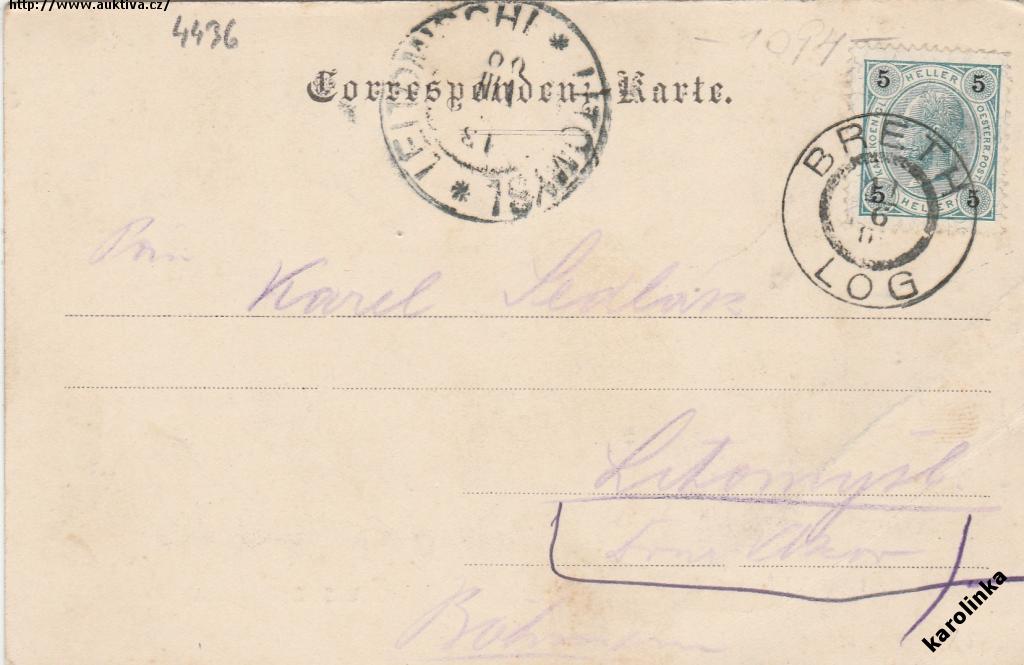 http://www.auktiva.cz/
4436
- 1094 -
Correspondenz-Karte.
LEITOMISCHL * LITOMYŠL *
13
5 HELLER 5
KAIS. KOENIGL. OESTERR. POST
5 HELLER 5
BRETH
6
LOG
Pan
Karel Sedlák
Litomyšl.
Böhmen
karolinka